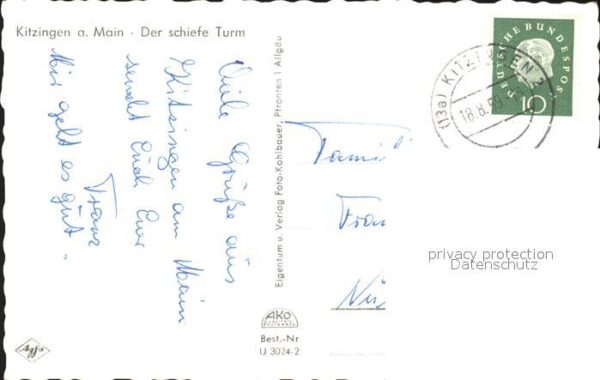 Kitzingen a. Main · Der schiefe Turm
Viele Grüße aus
Kitzingen am Main
sendet Euch Euer
Franz
Mir geht es gut.
Eigentum u. Verlag Foto-Kohlbauer, Pfronten I. Allgäu
AKO
Best.-Nr
U 3024-2
Agfa
DEUTSCHE BUNDESPOST
10
(13a) KITZINGEN 2
18.8.59
Famil
Fran
privacy protection
Datenschutz